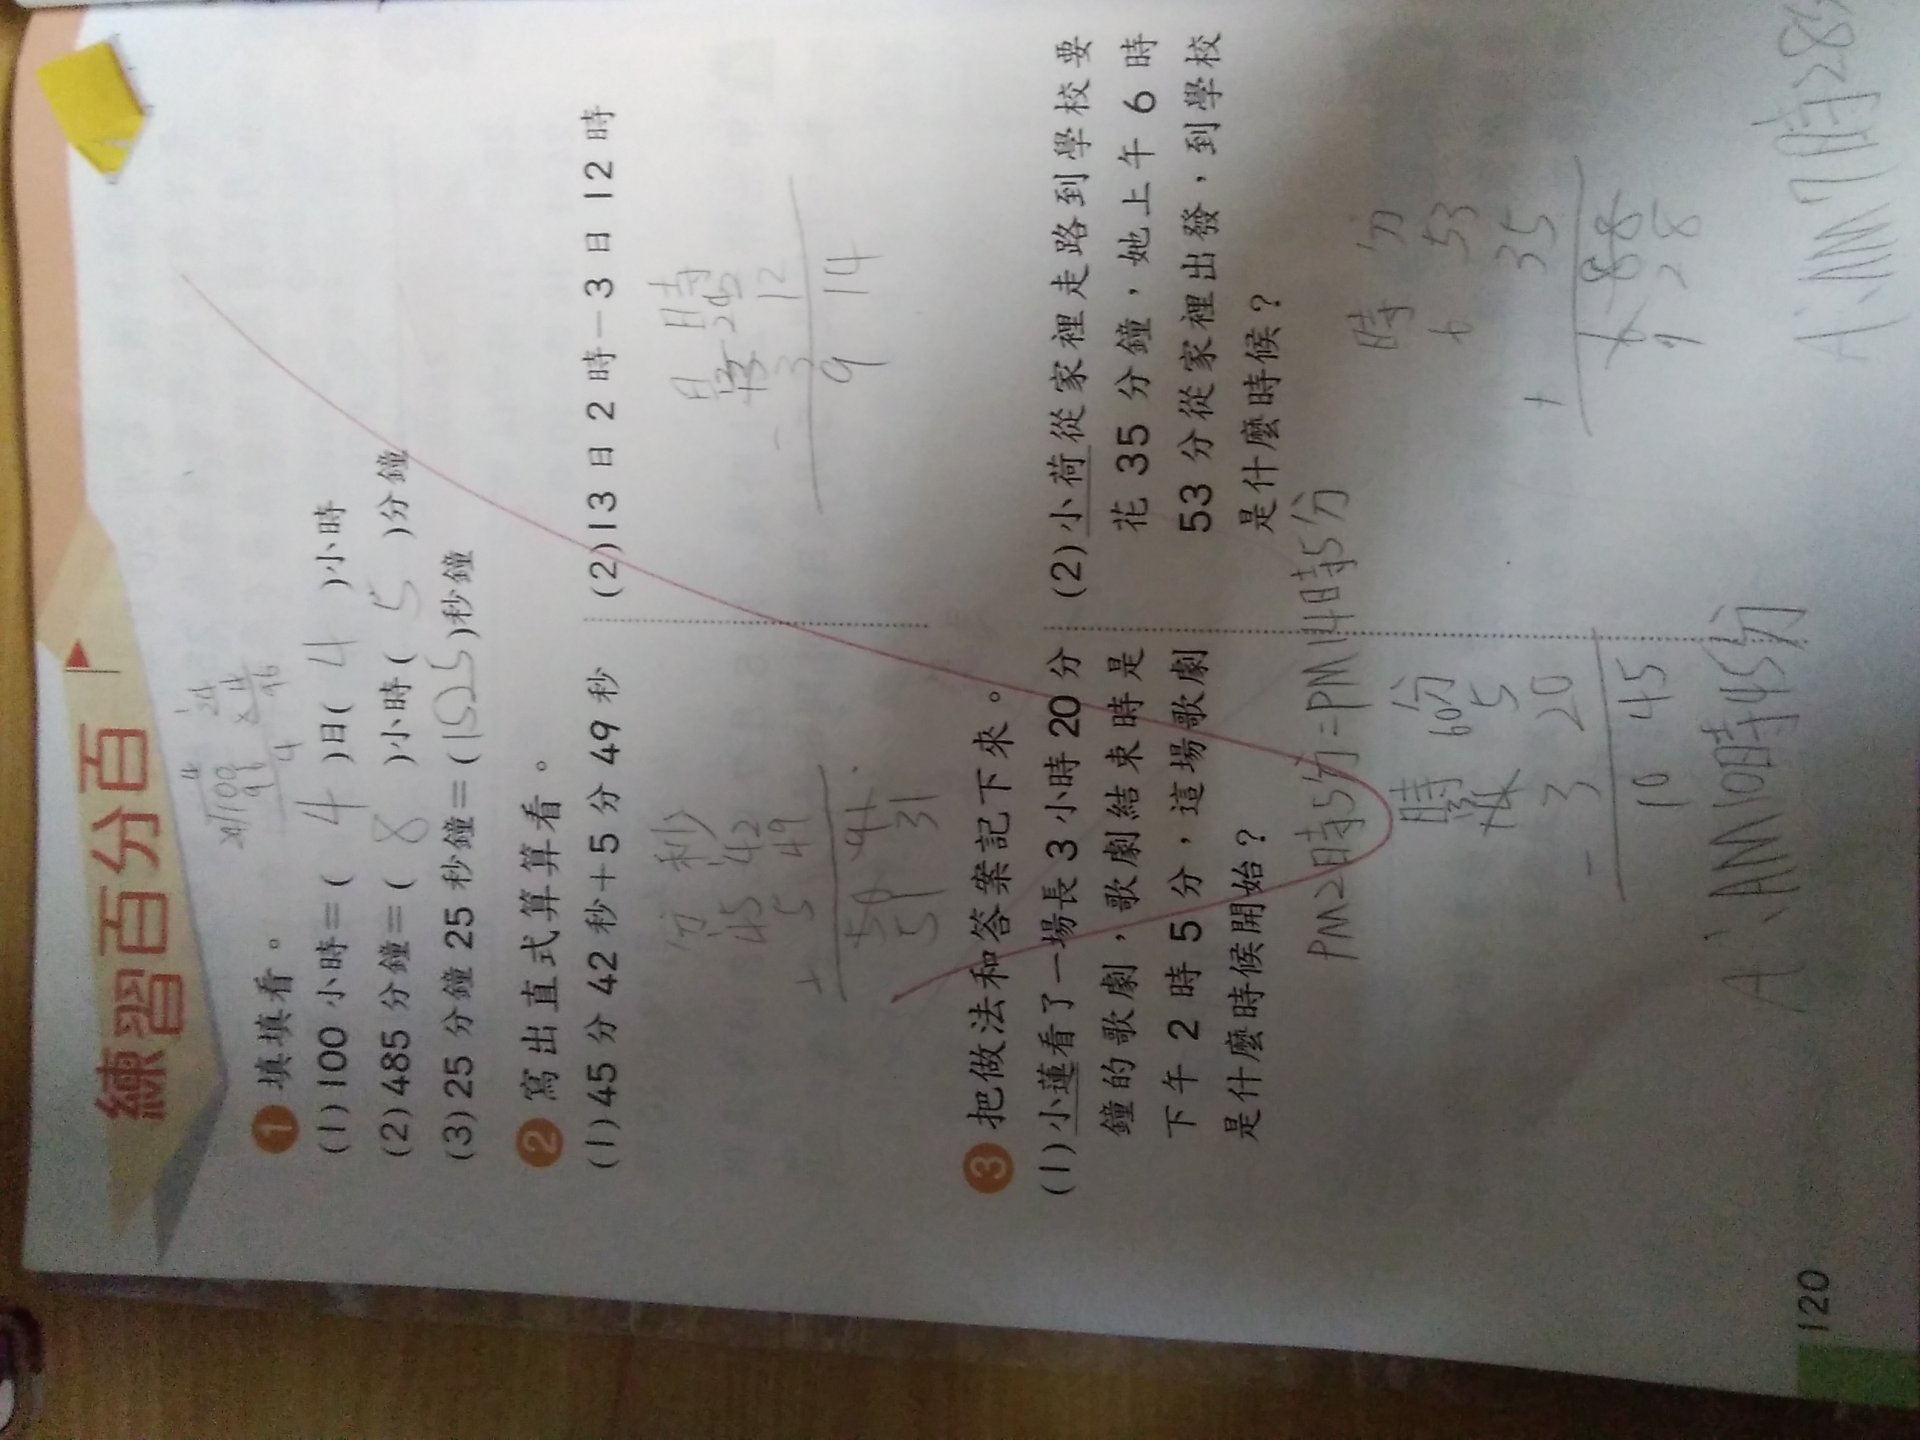 練習百分百
24 100 4 96 4
24 × 4 96
1 填填看。
(1) 100 小時=( 4 )日( 4 )小時
(2) 485 分鐘=( 8 )小時( 5 )分鐘
(3) 25 分鐘 25 秒鐘=(1525)秒鐘
2 寫出直式算算看。
(1) 45 分 42 秒+5 分 49 秒
分 秒
45 42
+ 5 49
50 91
51 31
(2) 13 日 2 時-3 日 12 時
日 時
- 3 12
9 14
3 把做法和答案記下來。
(1) 小蓮看了一場長 3 小時 20 分
鐘的歌劇,歌劇結束時是
下午 2 時 5 分,這場歌劇
是什麼時候開始?
PM2時5分=PM14時5分
時 分
60
5
- 3 20
10 45
A:AM10時45分
(2) 小荷從家裡走路到學校要
花 35 分鐘,她上午 6 時
53 分從家裡出發,到學校
是什麼時候?
時 分
6 53
+ 35
6 88
28
A:AM7時28分
120